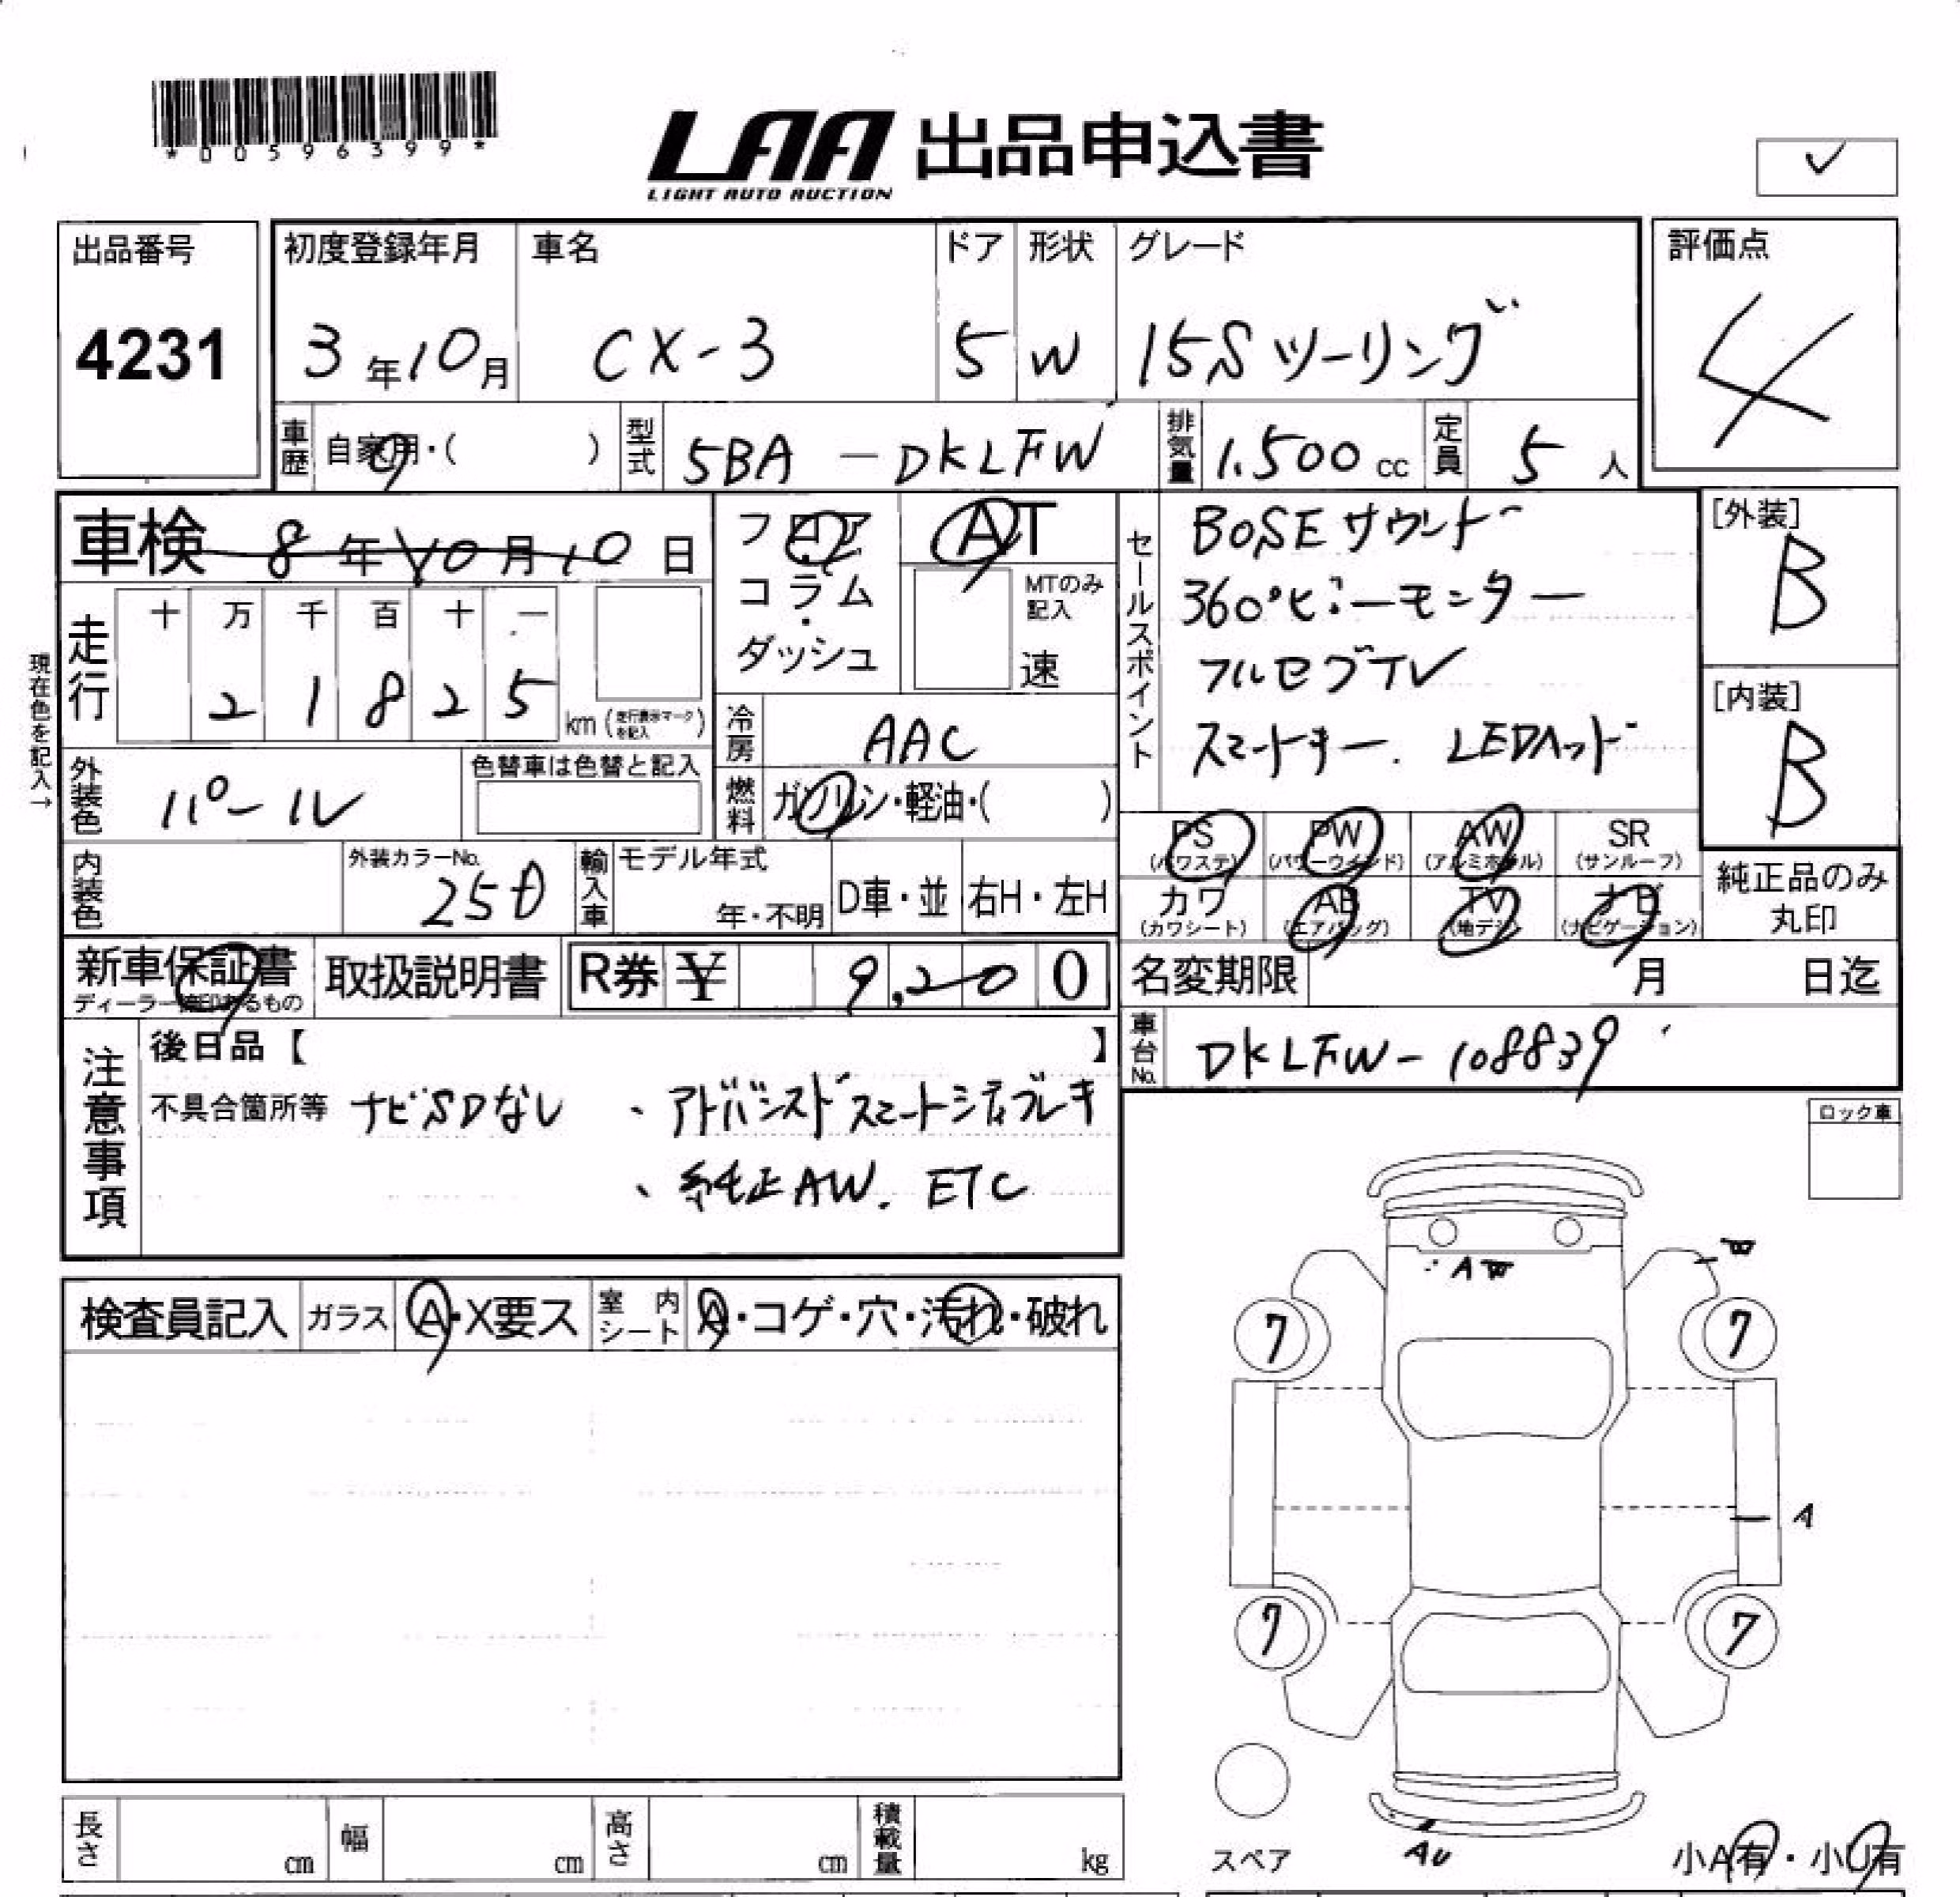 *00596399*
LAA 出品申込書
LIGHT AUTO AUCTION
✓
出品番号
4231
初度登録年月
3年10月
車名
CX-3
ドア
5
形状
W
グレード
15Sツーリング
評価点
4
車歴 自家用・( )
型式 5BA-DKLFW
排気量 1.500cc
定員 5人
車検 8年10月10日
フロア・コラム・ダッシュ
AT
MTのみ記入
速
現在色を記入→
走行 十 万 千 百 十 一
2 1 8 2 5 km (走行表示マークを記入)
冷房 AAC
燃料 ガソリン・軽油・( )
外装色 パール
色替車は色替と記入
内装色
外装カラーNo.
25D
輸入車 モデル年式
年・不明
D車・並
右H・左H
セールスポイント
BOSEサウンド
360°ビューモニター
フルセグTV
スマートキー. LEDヘッド
[外装]
B
[内装]
B
PS (パワステ)
PW (パワーウィンド)
AW (アルミホイル)
SR (サンルーフ)
カワ (カワシート)
AB (エアバッグ)
TV (地デジ)
ナビ (ナビゲーション)
純正品のみ丸印
新車保証書
ディーラー捺印あるもの
取扱説明書
R券 ¥ 9,200
名変期限 月 日迄
車台No. DKLFW-108839
注意事項
後日品【 】
不具合箇所等 ナビSDなし
、アドバンスドスマートシティブレーキ
、純正AW. ETC
ロック車
検査員記入
ガラス A・X要ス
室内シート A・コゲ・穴・汚れ・破れ
AW
W
7
7
A
7
7
AU
スペア
小A有・小U有
長さ cm
幅 cm
高さ cm
積載量 kg